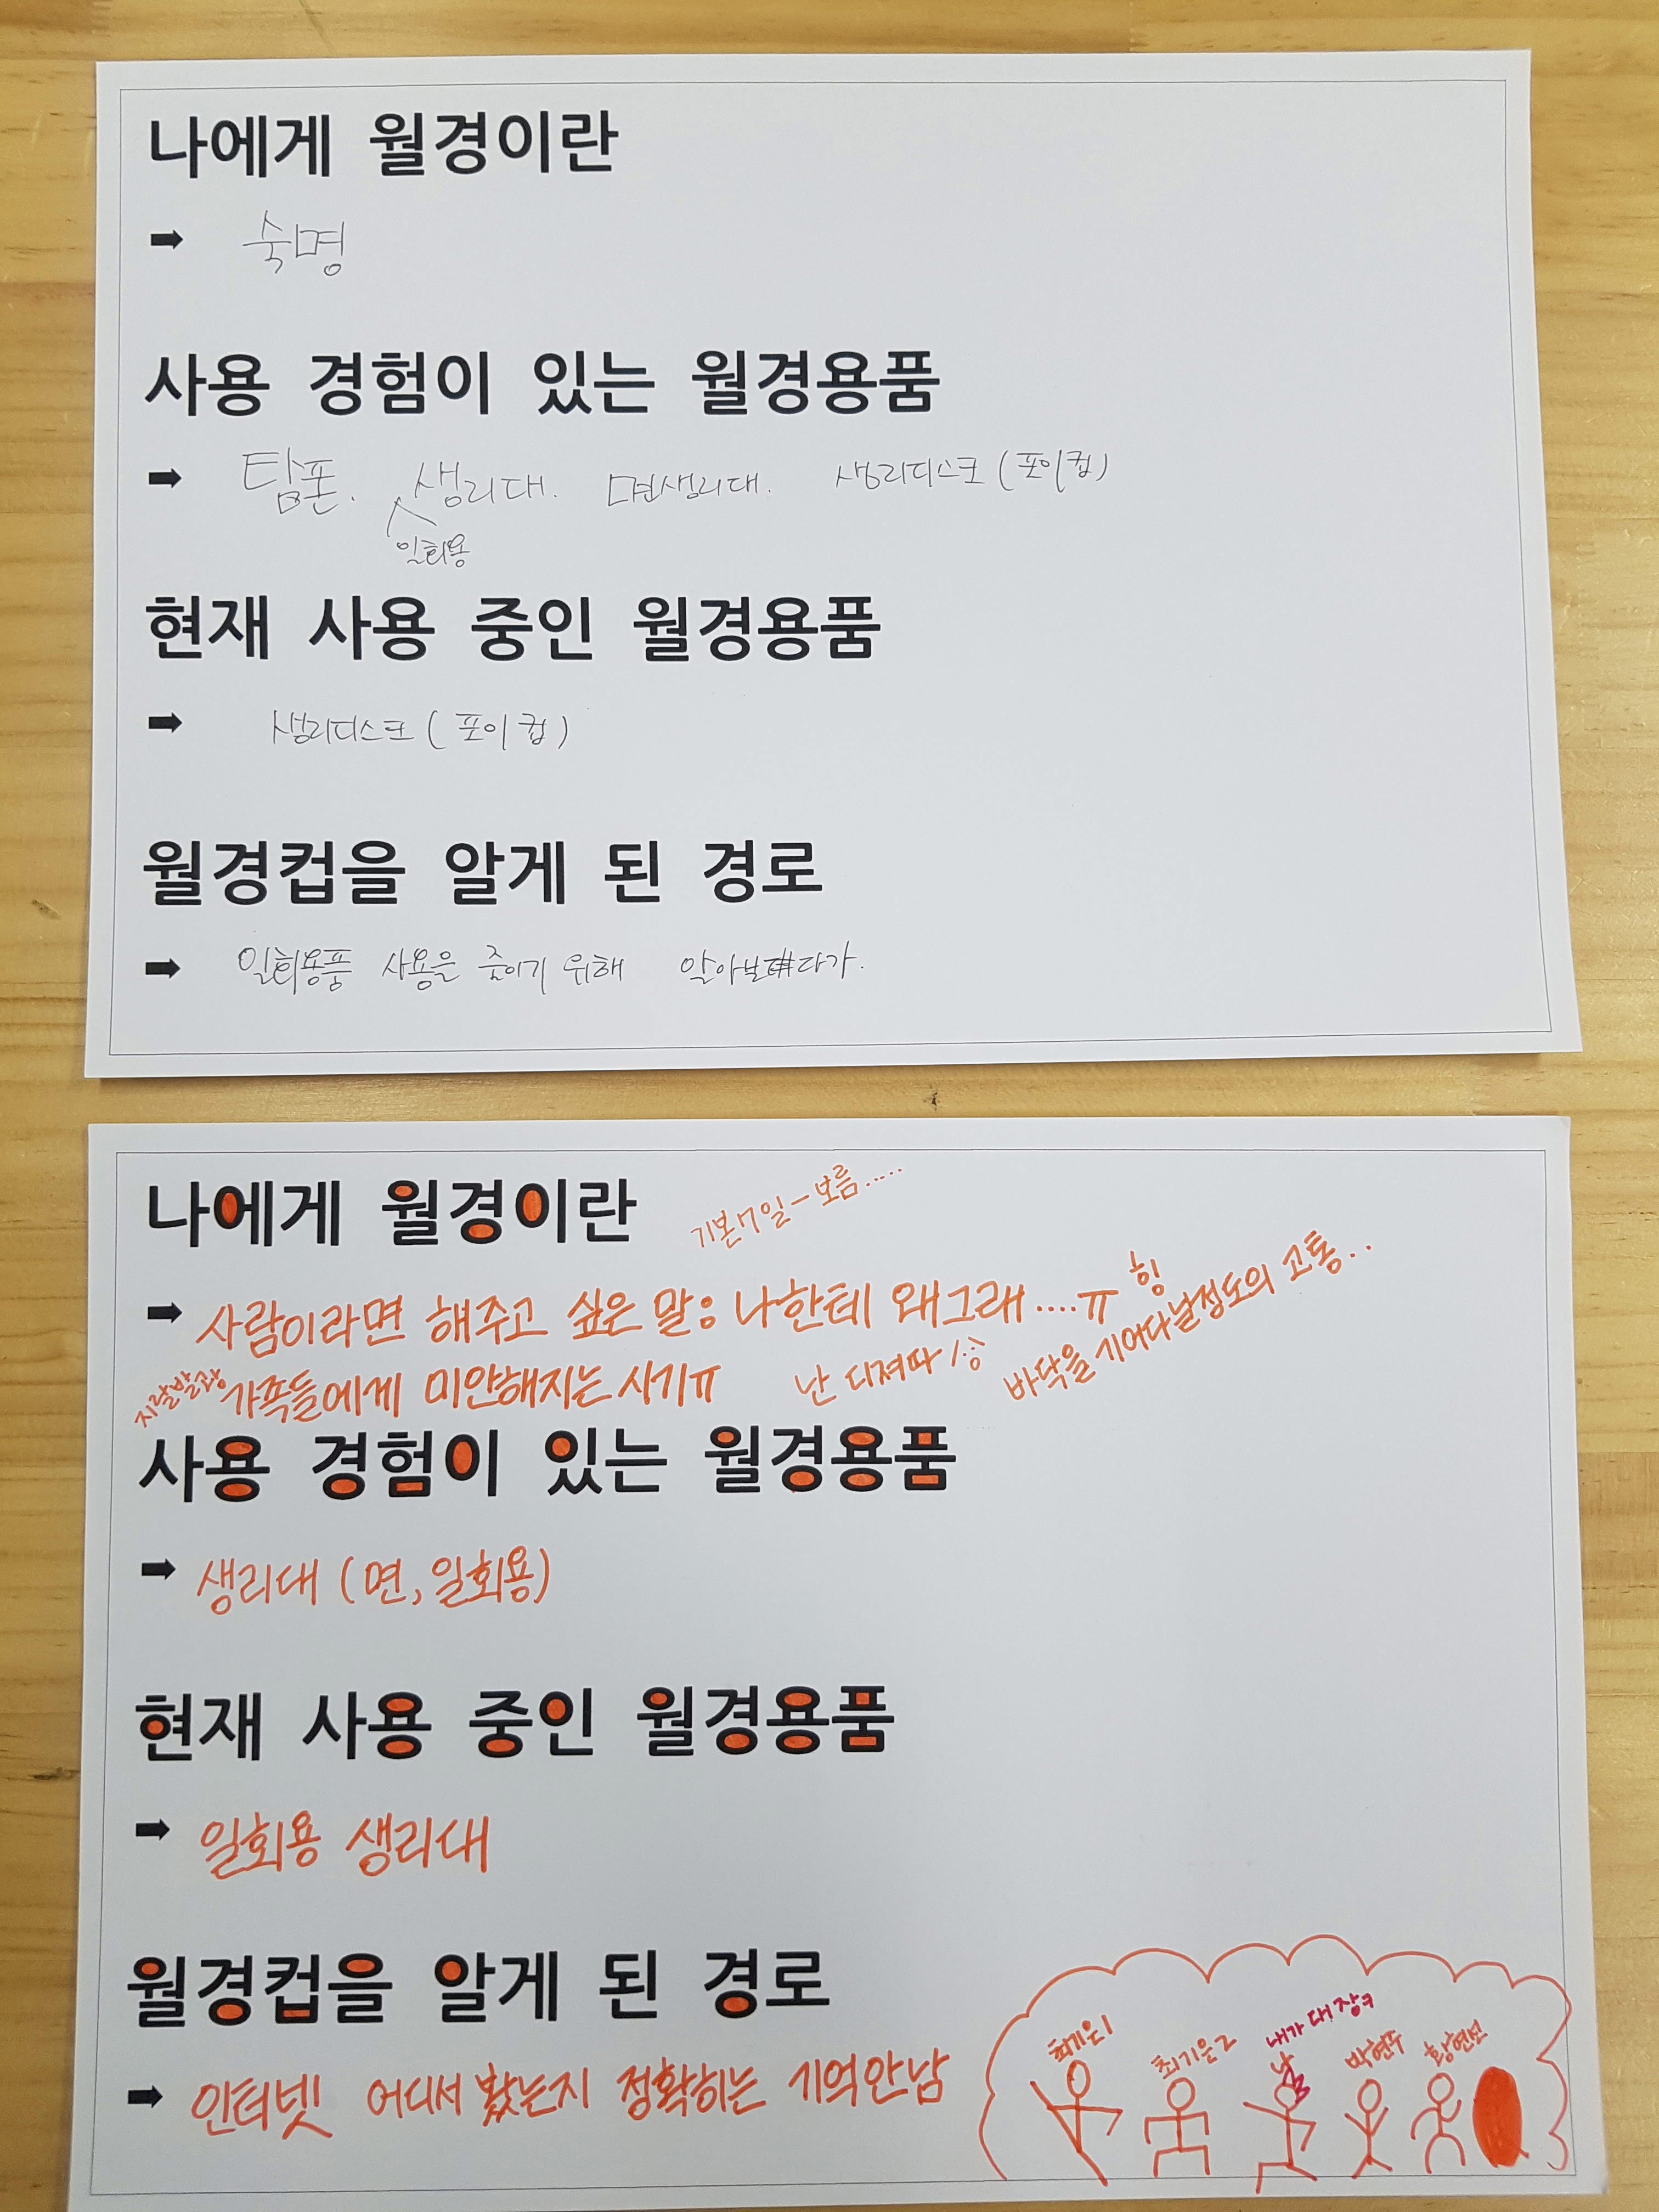 나에게 월경이란
➡ 숙명
사용 경험이 있는 월경용품
➡ 탐폰. 생리대. 면생리대. 생리디스크 (포이컵)
일회용
현재 사용 중인 월경용품
➡ 생리디스크 (포이컵)
월경컵을 알게 된 경로
➡ 일회용품 사용을 줄이기 위해 알아보다가.
나에게 월경이란
기본 7일 – 보름.....
➡ 사람이라면 해주고 싶은 말: 나한테 왜그래....ㅠ 힝
지랄발광 가족들에게 미안해지는 시기ㅠ 난 디져따
바닥을 기어다닐정도의 고통..
사용 경험이 있는 월경용품
➡ 생리대 (면, 일회용)
현재 사용 중인 월경용품
➡ 일회용 생리대
월경컵을 알게 된 경로
➡ 인터넷 어디서 봤는지 정확히는 기억안남
최기은1 최기은2 내가 대장 박현주 황현선